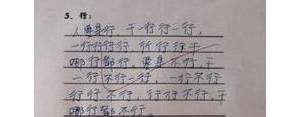 3、行：
人要是行，干一行行一行，
一行行行行，行行行干
哪行都行。要是不行，干
一行不行一行，一行不行
行行不行，行行不行，干
哪行都不行。